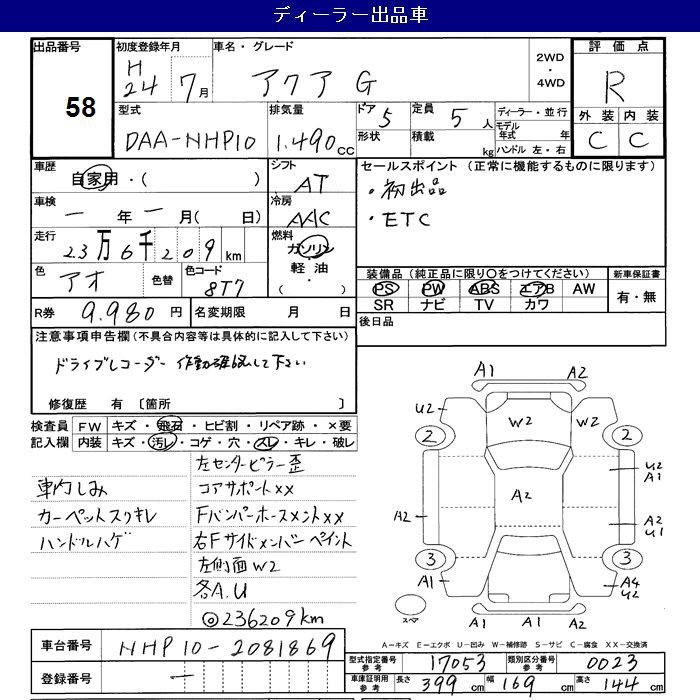 ディーラー出品車
出品番号 58
初度登録年月 H24 7月
車名・グレード アクア G
2WD・4WD
評価点 R
外装 C 内装 C
型式 DAA-NHP10
排気量 1.490cc
ドア 5 形状
定員 5人 積載 kg
ディーラー・並行
モデル年式 年
ハンドル 左・右
車歴 自家用・( )
シフト AT
セールスポイント (正常に機能するものに限ります)
・初出品
・ETC
車検 一年一月( 日)
冷房 AAC
走行 23万6千209km
燃料 ガソリン・軽油・( )
色 アオ 色替 色コード 8T7
装備品(純正品に限り○をつけてください)
PS PW ABS エアB AW
SR ナビ TV カワ
新車保証書 有・無
R券 9.980円 名変期限 月 日
後日品
注意事項申告欄(不具合内容等は具体的に記入して下さい)
ドライブレコーダー 作動確認して下さい
修復歴 有〔箇所 〕
検査員記入欄
FW キズ・飛石・ヒビ割・リペア跡・×要
内装 キズ・汚レ・コゲ・穴・スレ・キレ・破レ
車内しみ
カーペットスリキレ
ハンドルハゲ
左センターピラー歪
コアサポートXX
FバンパーホースメントXX
右Fサイドメンバーペイント
左側面W2
各A.U
◎236209km
A1 A2
U2 W2 W2 A2
2 2
A2 A2 U2 A1
A2 U1
3 3
A1 A4 U2
A1 A1 A2
スペア
A−キズ E−エクボ U−凹み W−補修跡 S−サビ C−腐食 XX−交換済
車台番号 NHP10-2081869
登録番号 一
型式指定番号 参考 17053
類別区分番号 参考 0023
車庫証明用 参考 長さ 399cm 幅 169cm 高さ 144cm